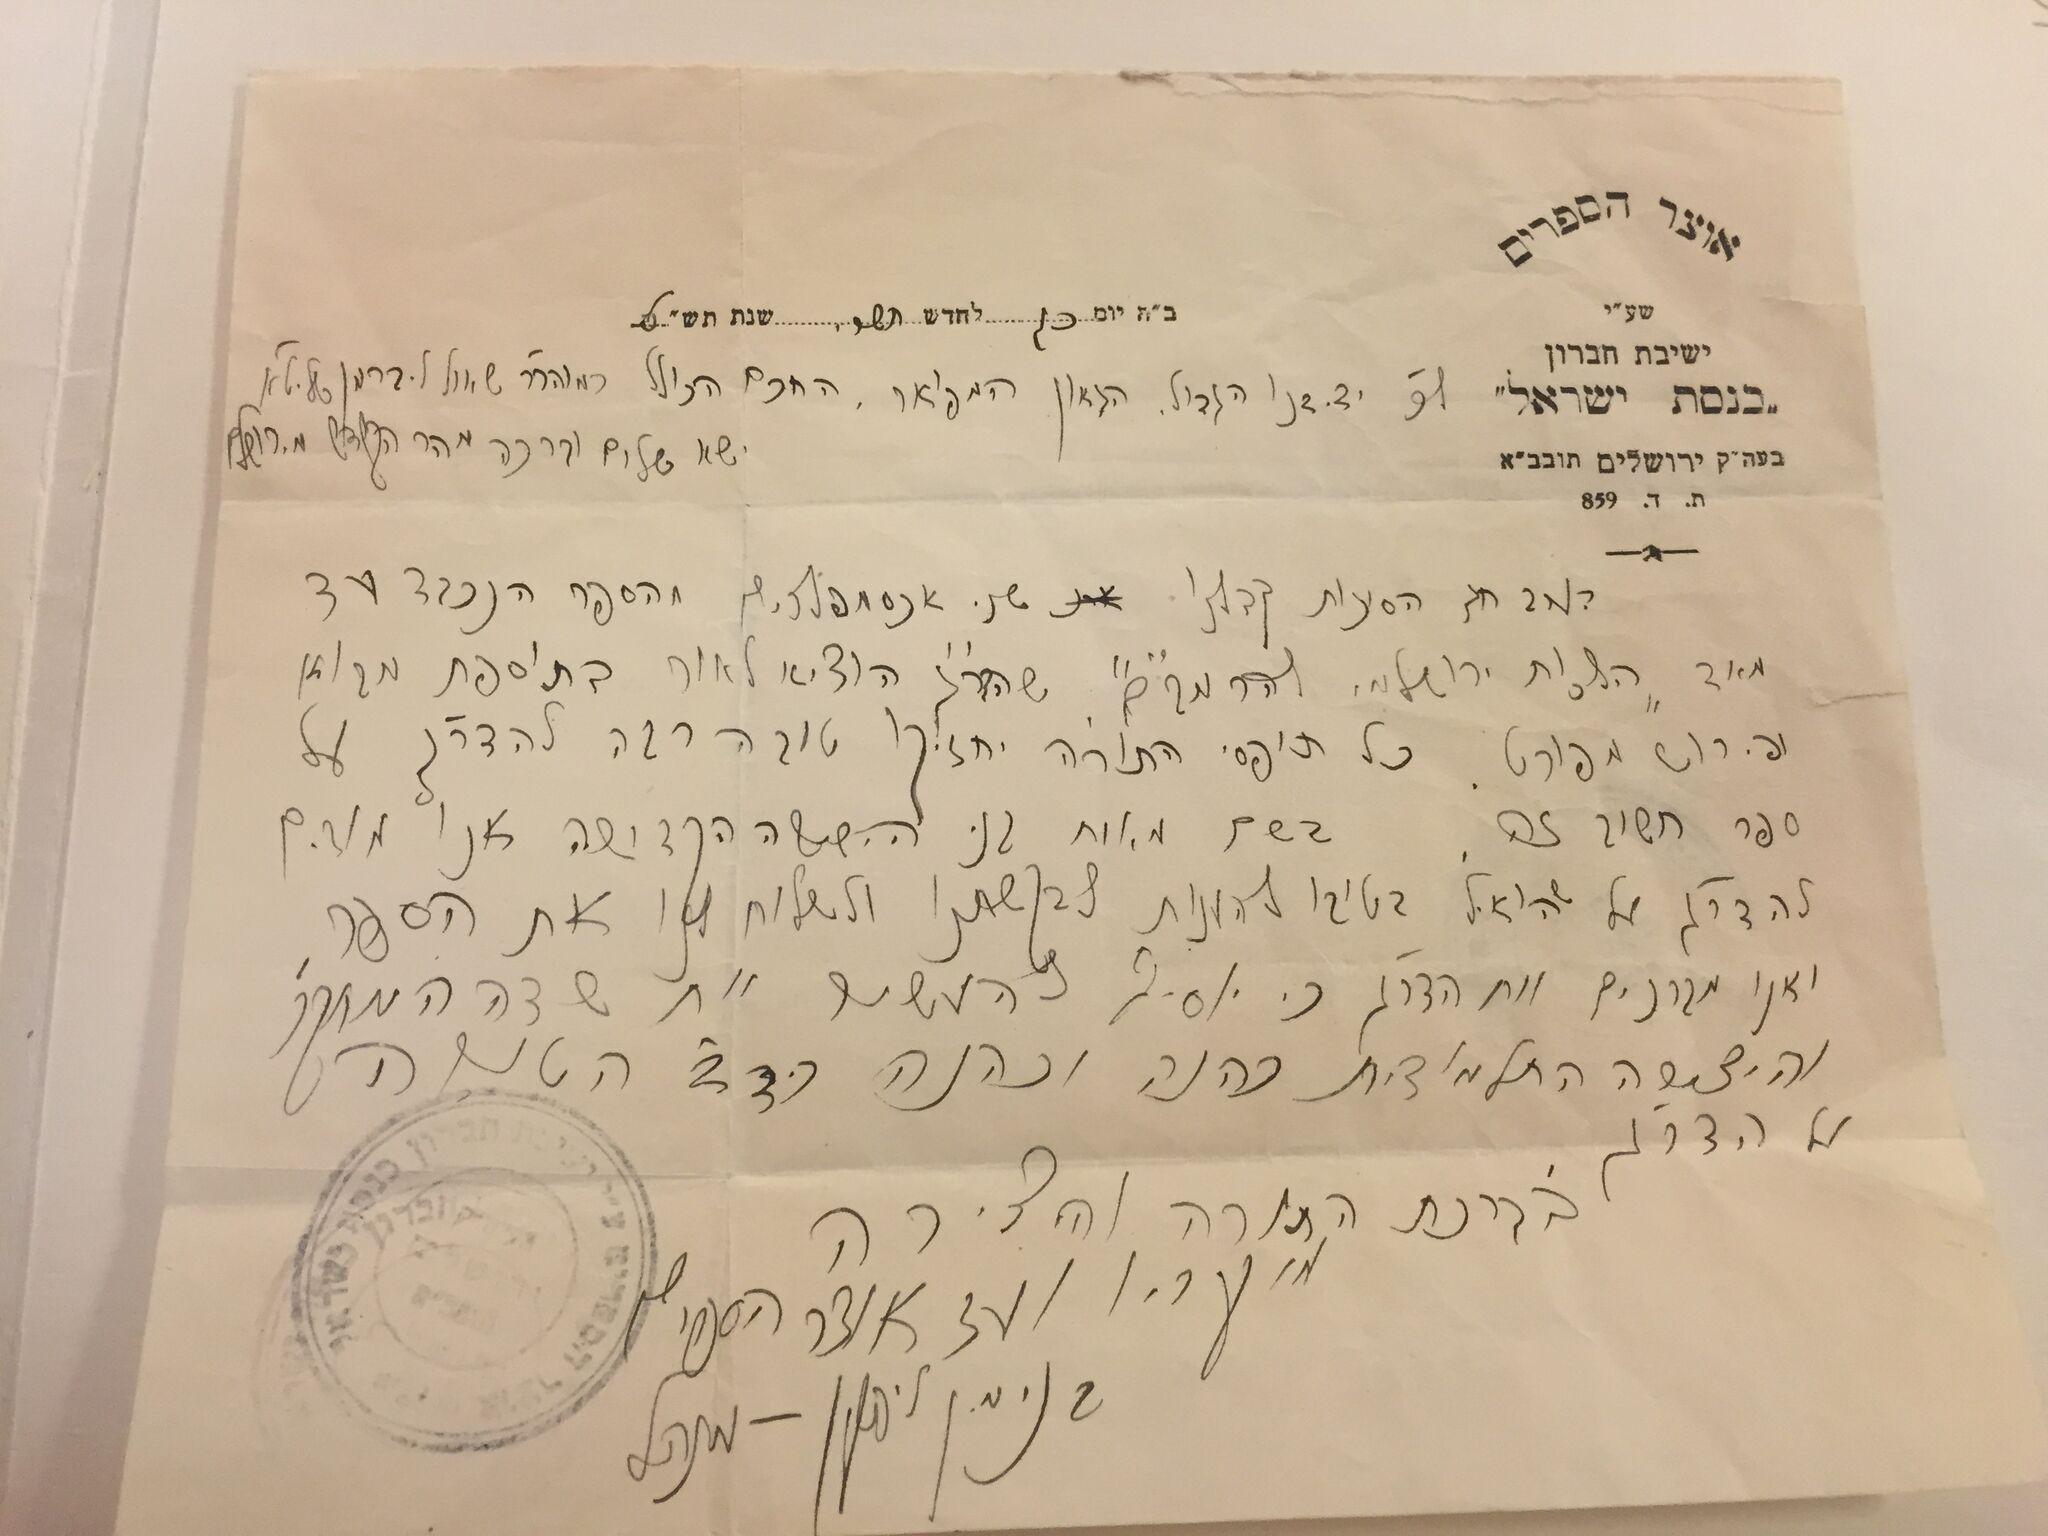 אוצר הספרים
שע"י
ישיבת חברון
„כנסת ישראל"
בעה"ק ירושלים תובב"א
ת. ד. 859
ב"ה יום כג לחדש תשרי שנת תש"ט
יד-ידנו הגדול, הגאון המפואר, החכם הכולל כמוהר"ר שאול ליברמן שליט"א
ישא שלום וברכה מהר הקודש מירושלים
בערב חג הסוכות קבלנו שני אכסמפלרים מהספר הנכבד עד
מאד „הלכות ירושלמי להרמב"ם" שהדר"ג הוציא לאור בתוספת מבוא
ופירוש מפורט. כל תופסי התורה יחזיקו טובה רבה להדר"ג על
ספר חשוב זה. בשם מאות בני הישיבה הקדושה אנו מודים
להדר"ג על שהואיל בטובו להענות לבקשתנו ולשלוח לנו את הספר
ואנו מברכים את הדר"ג כי יוסיף להעשיר את שדה המחקר
והיצירה התלמודית כהנה וכהנה כיד ה' הטובה
על הדר"ג
בברכת התורה והיצירה
ועד אוצר הספרים
בנימין ליפקין – מנהל